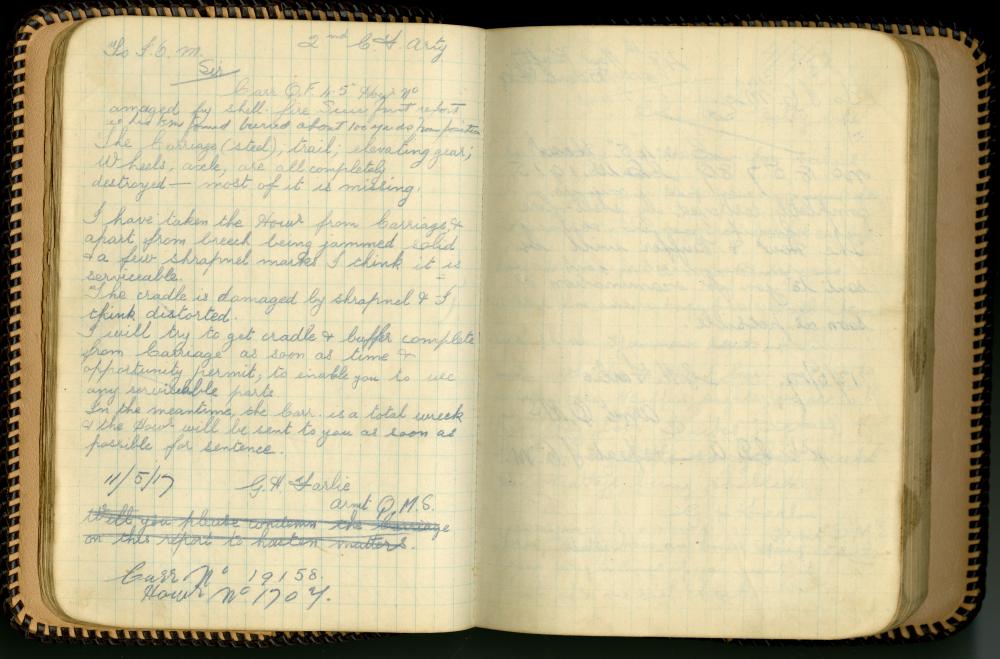 To I.O.M. 2nd C.H. Arty
Sir
Carr Q.F. 4.5" Howr No
amaged by shell-fire
found buried about 100 yards from position
The Carriage (steel), trail; elevating gear;
Wheels, axle, are all completely
destroyed — most of it is missing.
I have taken the Howr from Carriage &
apart from breech being jammed solid
& a few shrapnel marks I think it is
serviceable.
The cradle is damaged by shrapnel & I
think distorted.
I will try to get cradle & buffer complete
from Carriage as soon as time &
opportunity permit, to inable you to use
any serviceable parts
In the meantime, the Carr. is a total wreck
& the Howr will be sent to you as soon as
possible for sentence.
11/5/17 G.H. Farlie
armt Q.M.S.
Will you please condemn the Carriage
on this report to hasten matters.
Carr No 19158.
Howr No 1707.